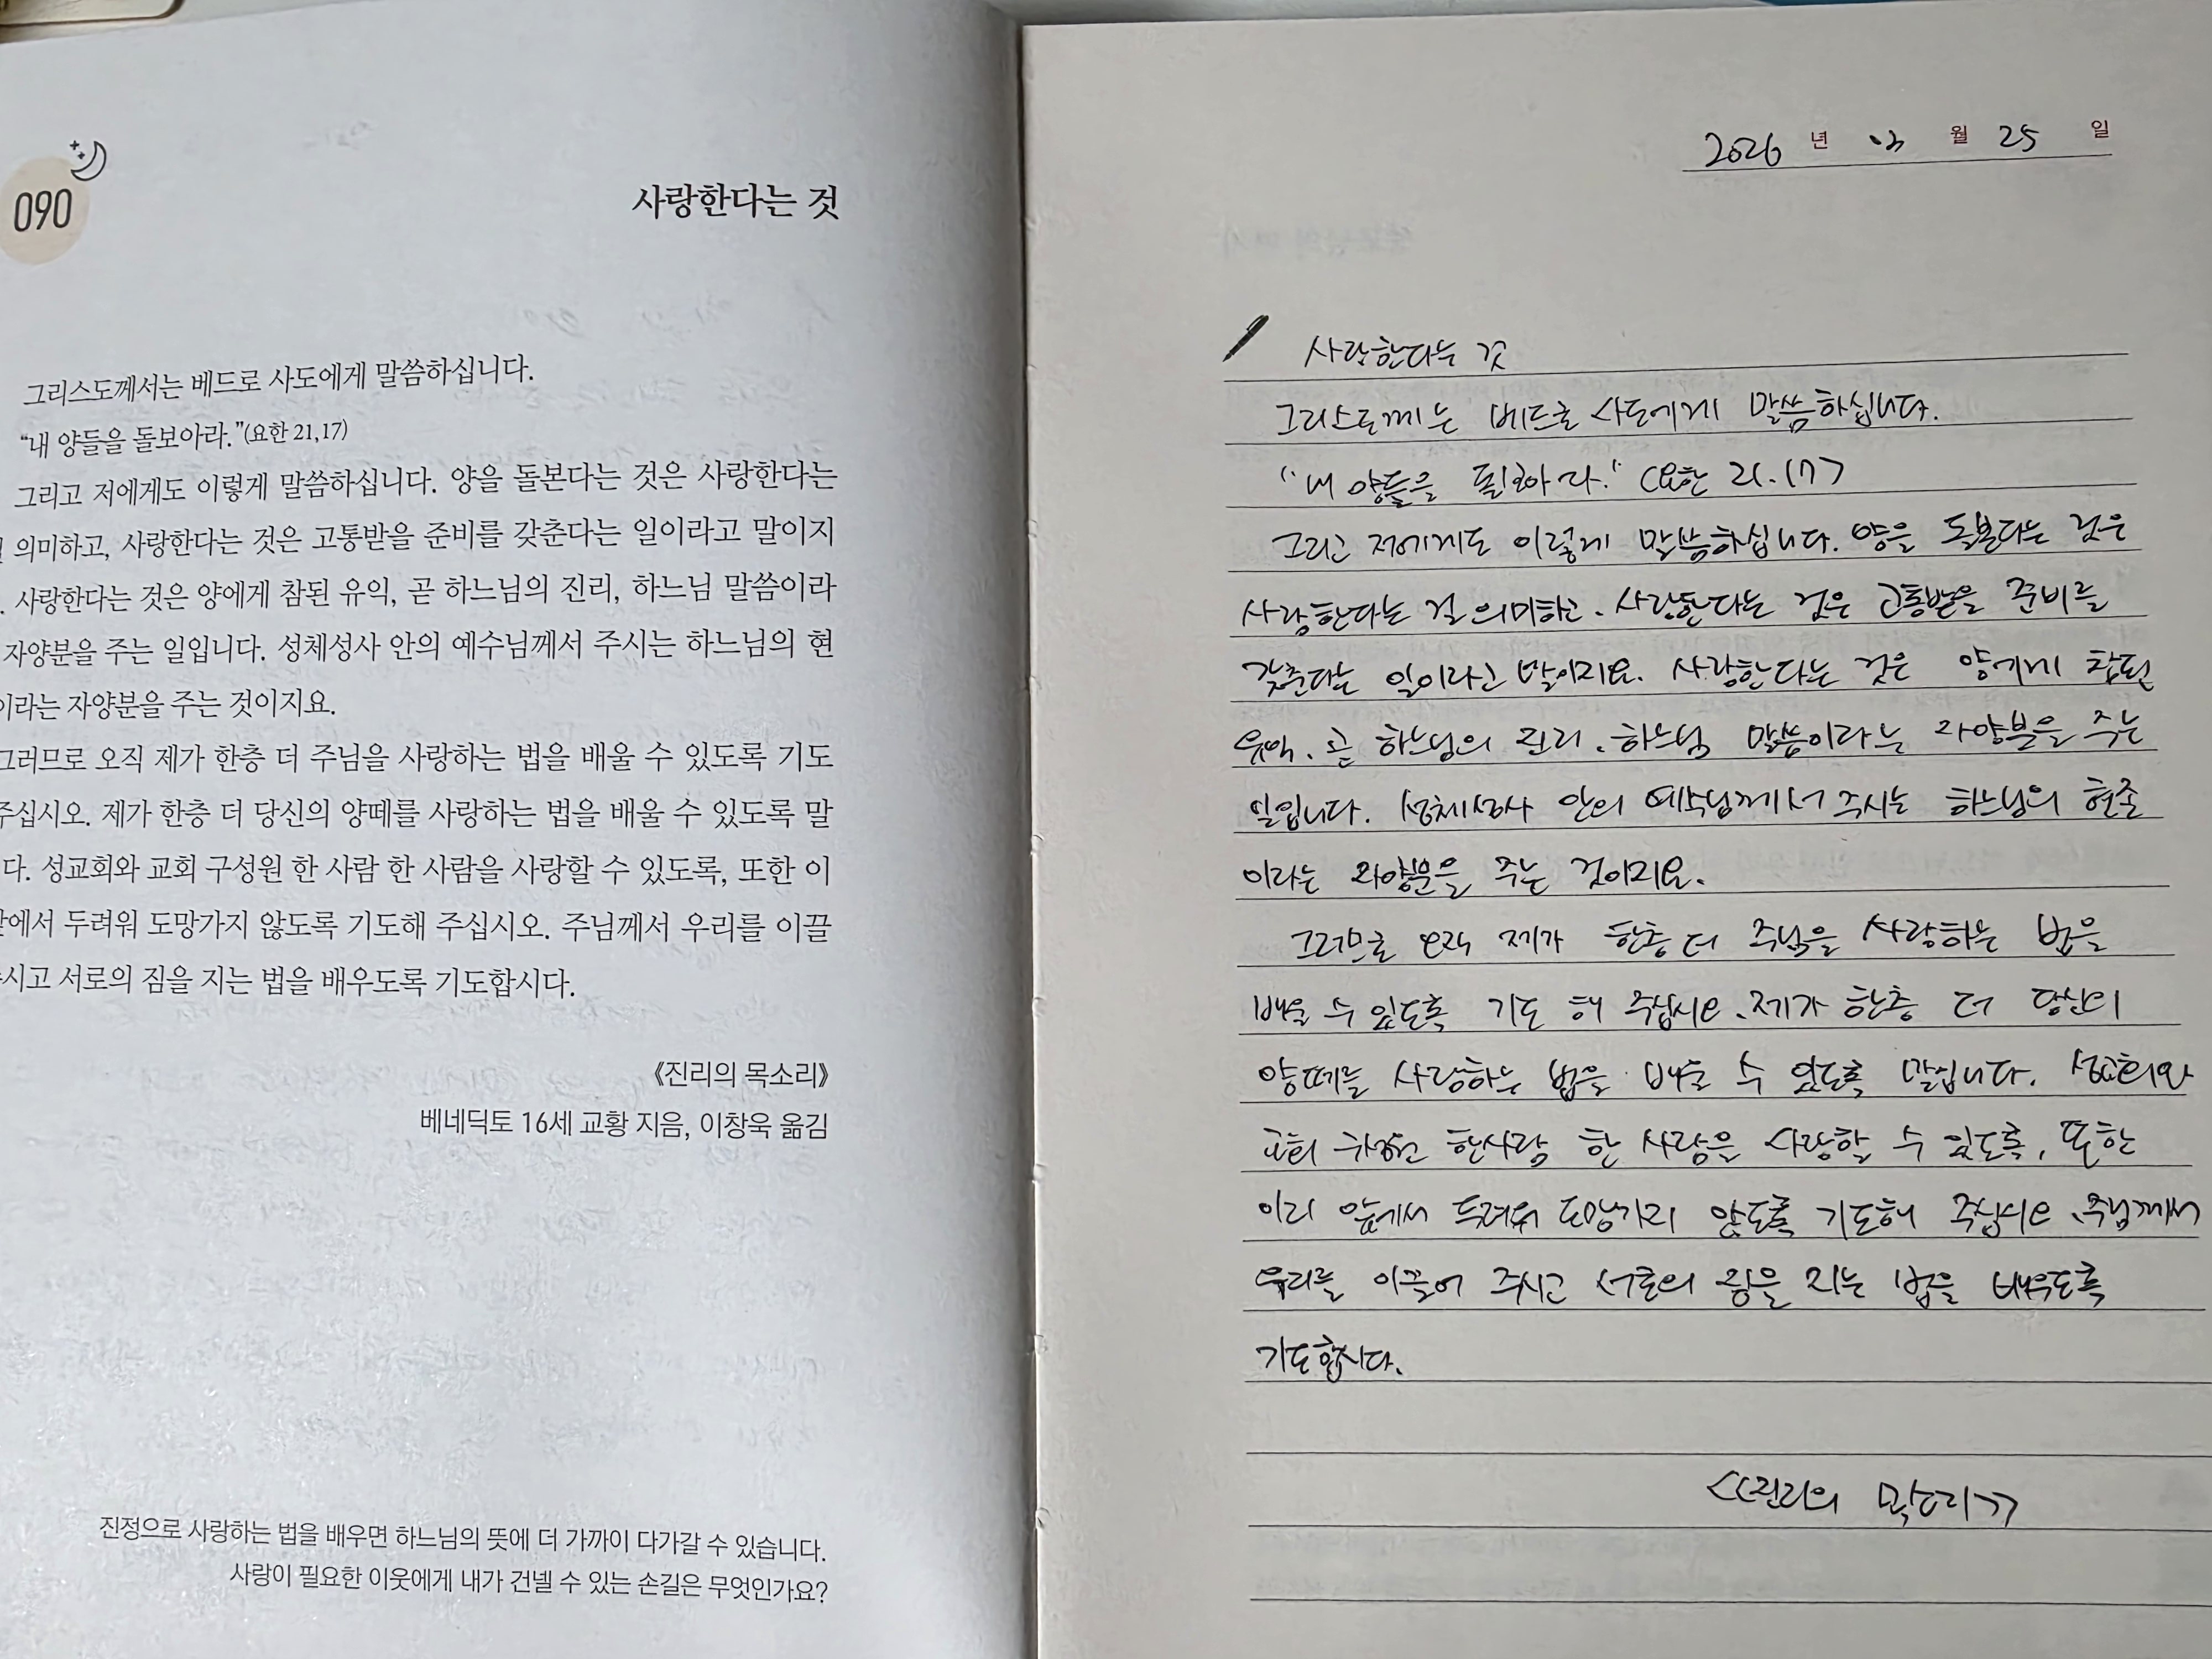 090
사랑한다는 것
그리스도께서는 베드로 사도에게 말씀하십니다.
“내 양들을 돌보아라.”(요한 21,17)
그리고 저에게도 이렇게 말씀하십니다. 양을 돌본다는 것은 사랑한다는
의미하고, 사랑한다는 것은 고통받을 준비를 갖춘다는 일이라고 말이지
. 사랑한다는 것은 양에게 참된 유익, 곧 하느님의 진리, 하느님 말씀이라
자양분을 주는 일입니다. 성체성사 안의 예수님께서 주시는 하느님의 현
이라는 자양분을 주는 것이지요.
그러므로 오직 제가 한층 더 주님을 사랑하는 법을 배울 수 있도록 기도
주십시오. 제가 한층 더 당신의 양떼를 사랑하는 법을 배울 수 있도록 말
다. 성교회와 교회 구성원 한 사람 한 사람을 사랑할 수 있도록, 또한 이
앞에서 두려워 도망가지 않도록 기도해 주십시오. 주님께서 우리를 이끌
시고 서로의 짐을 지는 법을 배우도록 기도합시다.
《진리의 목소리》
베네딕토 16세 교황 지음, 이창욱 옮김
진정으로 사랑하는 법을 배우면 하느님의 뜻에 더 가까이 다가갈 수 있습니다.
사랑이 필요한 이웃에게 내가 건넬 수 있는 손길은 무엇인가요?
2026 년 03 월 25 일
사랑한다는 것
그리스도께는 베드로 사도에게 말씀하십니다.
"내 양들을 (요한 21.17)
그리고 저에게도 이렇게 말씀하십니다. 양을 돌본다는 것은
사랑한다는 걸 의미하고. 사랑한다는 것은 고통받을 준비를
갖춘다는 일이라고 말이지요. 사랑한다는 것은 양에게 참된
유익. 곧 하느님의 진리. 하느님 말씀이라는 자양분을 주는
일입니다. 성체성사 안의 예수님께서 주시는 하느님의 현존
이라는 자양분을 주는 것이지요.
그러므로 오직 제가 한층 더 주님을 사랑하는 법을
배울 수 있도록 기도 해 주십시오. 제가 한층 더 당신의
양떼를 사랑하는 법을 배울 수 있도록 말입니다. 성교회와
교회 구성원 한사람 한 사람을 사랑할 수 있도록, 또한
이리 앞에서 두려워 도망가지 않도록 기도해 주십시오. 주님께서
우리를 이끌어 주시고 서로의 지는 법을 배우도록
기도합시다.
<<진리의 목소리>>